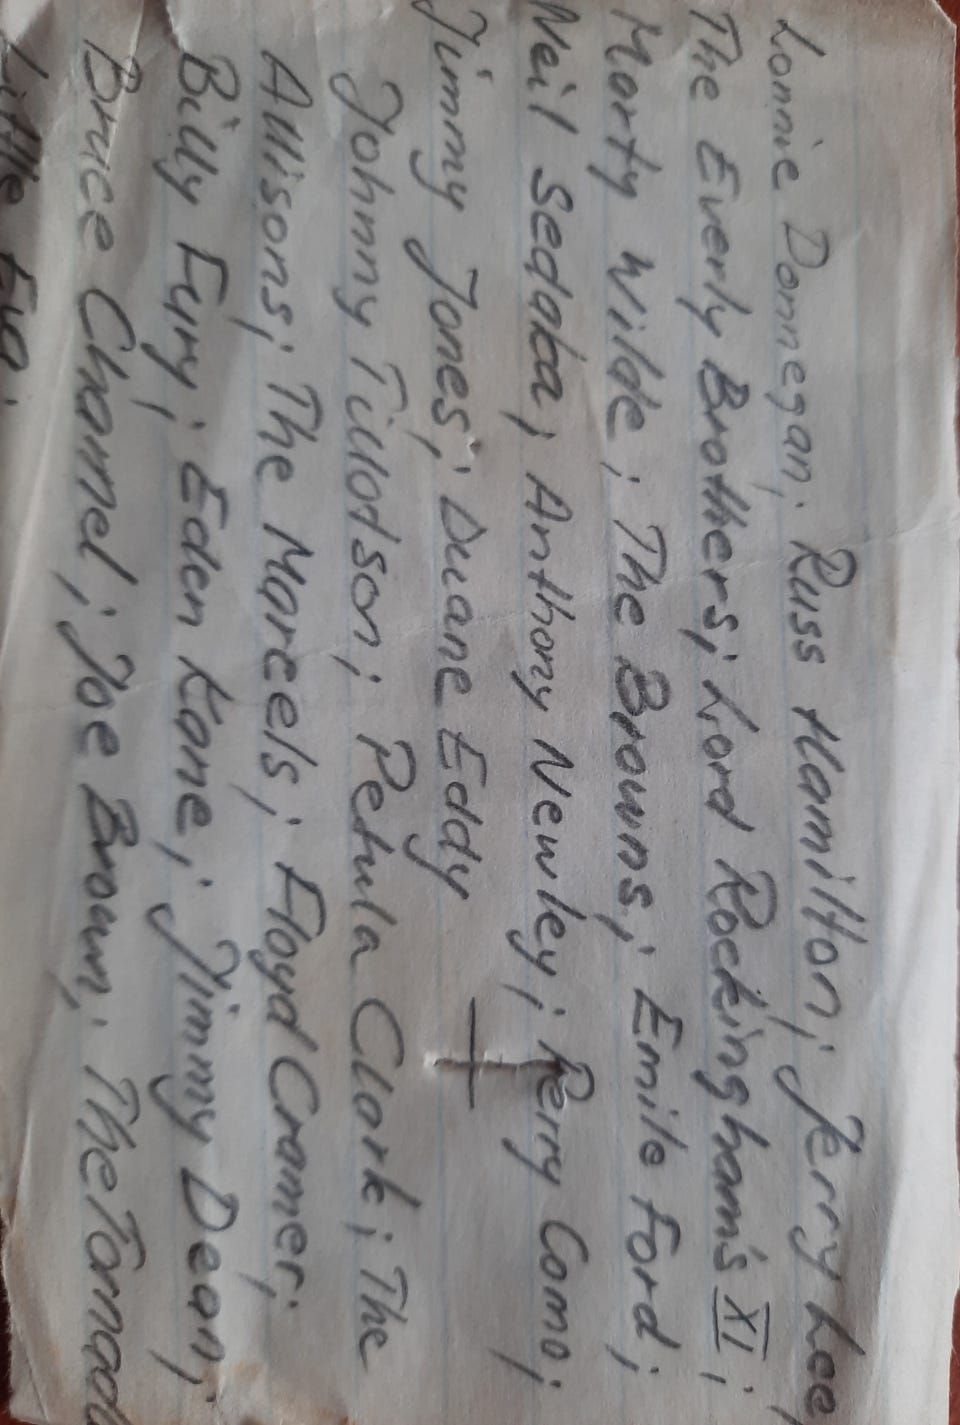 Lonnie Donnegan; Russ Hamilton; Jerry Lee
The Everly Brothers; Lord Rockingham's XI;
Marty Wilde; The Browns; Emile Ford;
Neil Sedaka; Anthony Newley; Perry Como;
Jimmy Jones; Duane Eddy
Johnny Tillotson; Petula Clark; The
Allisons; The Marcels; Floyd Cramer;
Billy Fury; Eden Kane; Jimmy Dean;
Bruce Channel; Joe Brown; The Tornado
Little Eva;